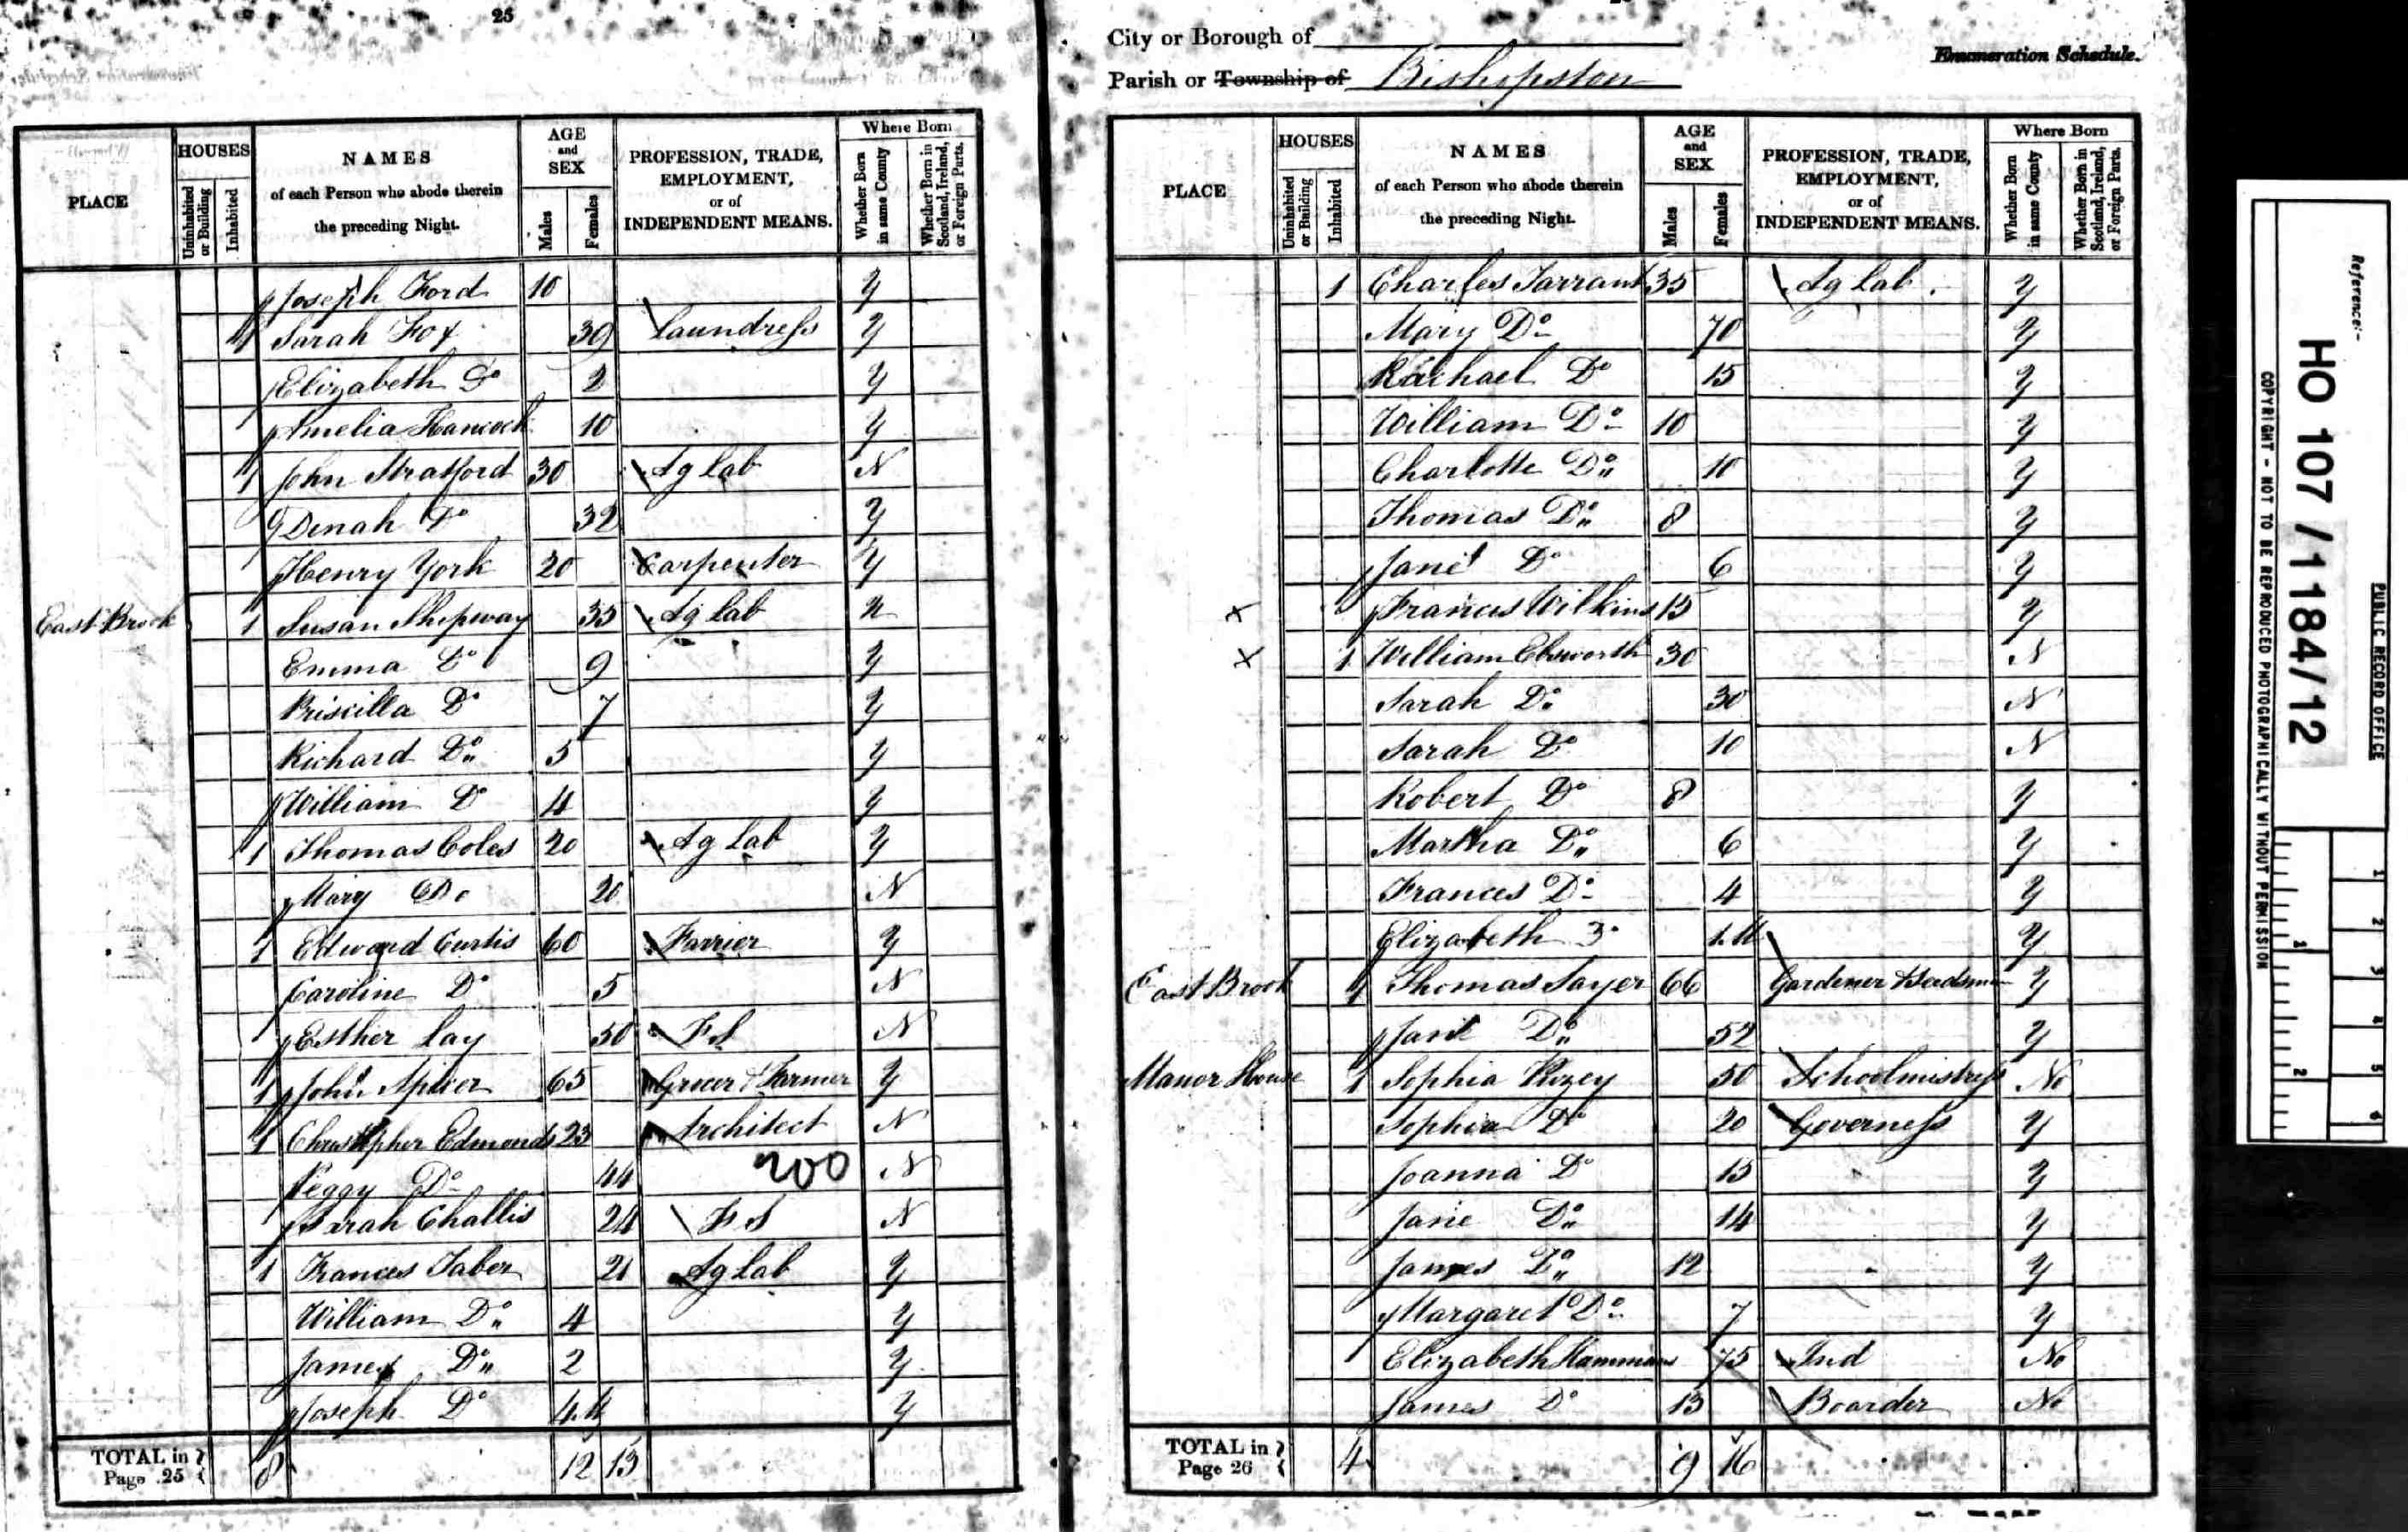 25
PLACE
HOUSES
Uninhabited or Building
Inhabited
NAMES
of each Person who abode therein
the preceding Night.
AGE
and
SEX
Males
Females
PROFESSION, TRADE,
EMPLOYMENT,
or of
INDEPENDENT MEANS.
Where Born
Whether Born in same County
Whether Born in Scotland, Ireland, or Foreign Parts.
Joseph Ford 10 Y
1 Sarah Fox 39 Laundress Y
Elizabeth Do 2 Y
Amelia Hancock 10 Y
1 John Stratford 30 Ag Lab N
Dinah Do 32 Y
Henry York 20 Carpenter Y
East Brook 1 Susan Shipway 35 Ag Lab N
Emma Do 9 Y
Priscilla Do 7 Y
Richard Do 5 Y
William Do 4 Y
1 Thomas Coles 20 Ag Lab Y
Mary Do 20 N
1 Edward Curtis 60 Farrier Y
Caroline Do 5 N
Esther Lay 50 F S N
1 John Spicer 65 Grocer & Farmer Y
1 Christopher Edmonds 23 Architect N
Peggy Do 44 200 N
Sarah Challis 24 F S N
1 Frances Taber 21 Ag Lab Y
William Do 4 Y
James Do 2 Y
Joseph Do Y
TOTAL in Page 25 8 12 13
City or Borough of
Parish or Township of Bishopston
Enumeration Schedule.
PLACE
HOUSES
Uninhabited or Building
Inhabited
NAMES
of each Person who abode therein
the preceding Night.
AGE
and
SEX
Males
Females
PROFESSION, TRADE,
EMPLOYMENT,
or of
INDEPENDENT MEANS.
Where Born
Whether Born in same County
Whether Born in Scotland, Ireland, or Foreign Parts.
1 Charles Tarrant 35 Ag Lab. Y
Mary Do 70 Y
Rachael Do 15 Y
William Do 10 Y
Charlotte Do 10 Y
Thomas Do 8 Y
Jane Do 6 Y
x Frances Wilkins 15 Y
x 1 William Ebsworth 30 N
Sarah Do 30 N
Sarah Do 10 N
Robert Do 8 Y
Martha Do 6 Y
Frances Do 4 Y
Elizabeth Do Y
East Brook 1 Thomas Sayer 66 Gardener Y
Jane Do 52 Y
Manor House 1 Sophia 50 Schoolmistress No
Sophia Do 20 Governess Y
Joanna Do 15 Y
Jane Do 14 Y
James Do 12 Y
Margaret Do 7 Y
Elizabeth Hammans 75 Ind No
James Do 13 Boarder No
TOTAL in Page 26 4 9 16
Reference:-
HO 107/1184/12
PUBLIC RECORD OFFICE
COPYRIGHT - NOT TO BE REPRODUCED PHOTOGRAPHICALLY WITHOUT PERMISSION
1
2
3
4
5
6
1
2